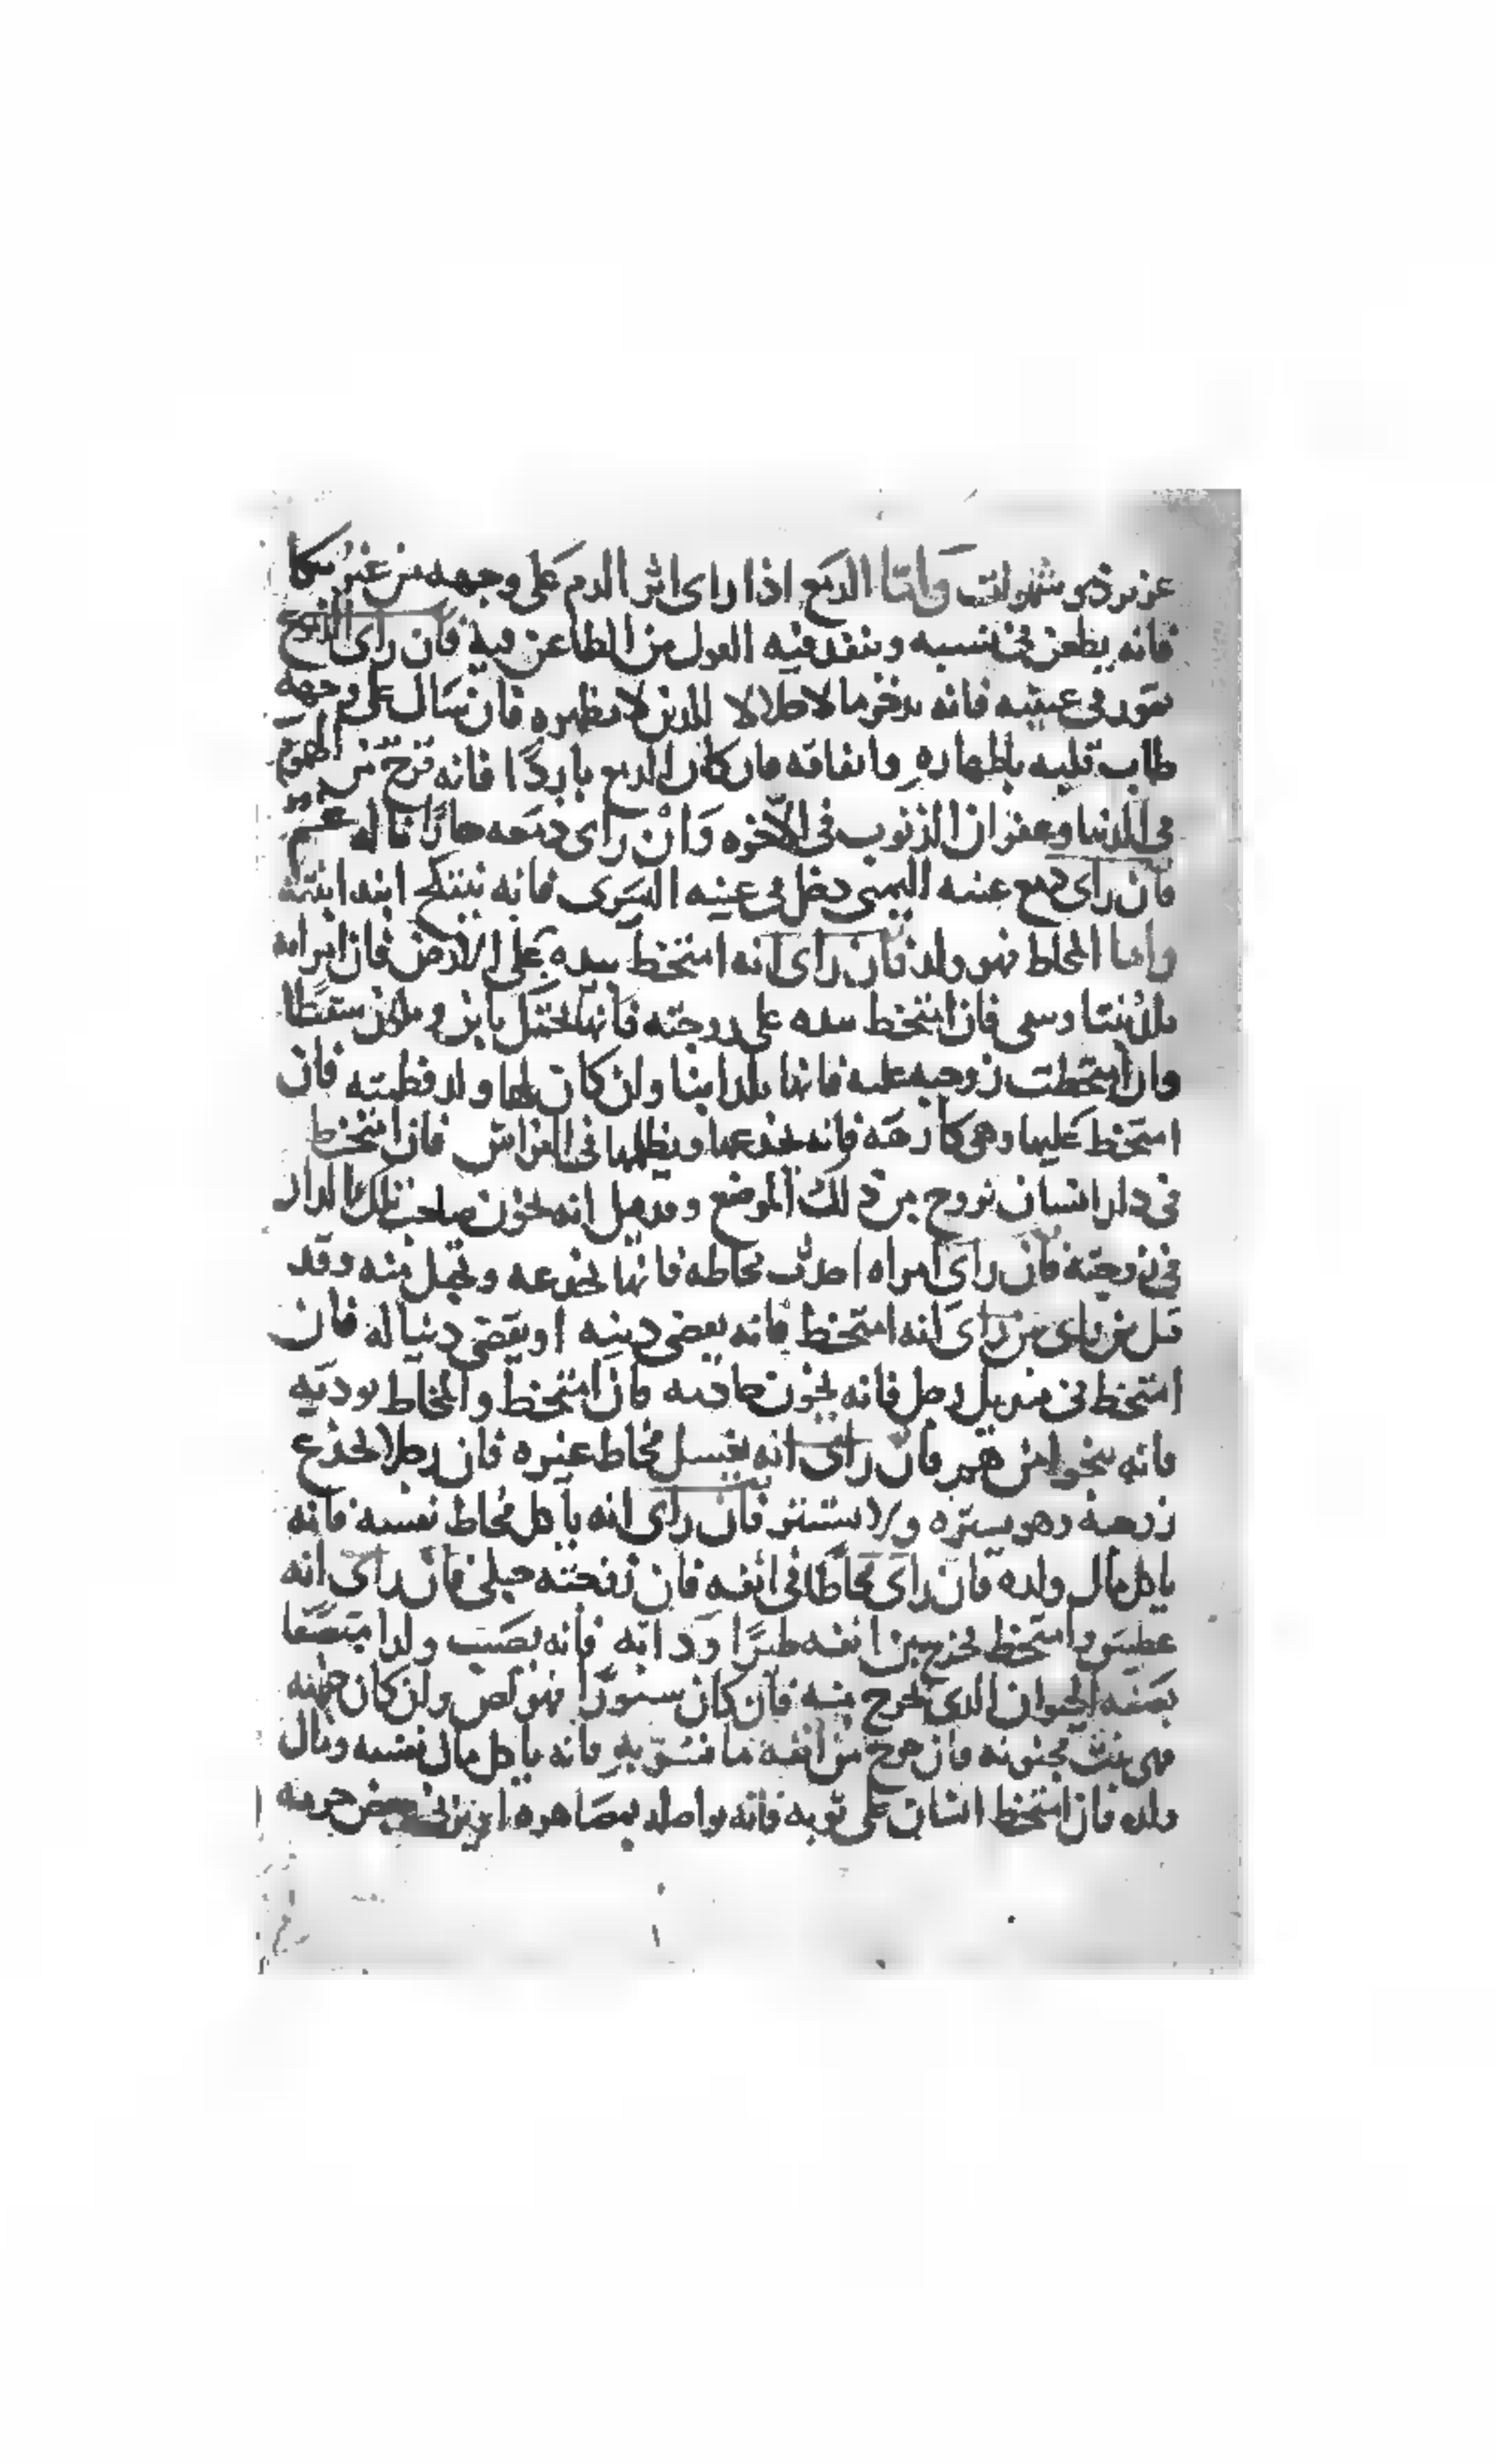 عزيز ذي واما الدمع اذا راى اثر الدم على وجهه من غير بكا
فانه يطعن في نسبه وينفد فيه القول من الطاعن فيه فان راى الدمع
يدور في عينيه فانه يدخر مالا حلالا لا يظهره فان سال على وجهه
طاب قلبه باظهاره وانفاقه فان كان الدمع باردا فانه فرح من الهموم
في الدنيا وغفران الذنوب في الاخره وان راى دمعه حارا فانه غم
فان راى دمع عينه اليمنى دخل في عينه اليسرى فانه ينكح ابنه ابنته
واما المخاط فهو ولد فان راى انه امتخط بيده على الارض فان امراته
تلد بنتا فان امتخط بيده على زوجته فانها تحمل بابن سقطا
وان امتخطت زوجته عليه فانها تلد ابنا وان كان لها ولد فطمته فان
امتخط عليها وهي كارهه فانه يخدعها في الفراش فان امتخط
في دار انسان تزوج من ذلك الموضع وقد قيل انه يخون صاحب تلك الدار
في زوجته فان راى امراه اخذت مخاطه فانها تخدعه وتحمل منه وقد
قيل من راى انه امتخط فانه يقضي دينه او يقضي دنيا له فان
امتخط في منديل رجل فانه يخون فان امتخط والمخاط يوديه
فانه ينجوا من هم فان راى انه يغسل مخاط غيره فان رجلا يخدع
زوجته وهو يستره ولا يستتر فان راى انه ياكل مخاط نفسه فانه
ياكل مال ولده فان راى مخاطا في انفه فان زوجته حبلى فان راى انه
عطس وامتخط فخرج من انفه طيرا ودابه فانه يصيب ولدا متصفا
بصفه الحيوان الذي خرج منه فان كان سنورا فهو لص وان كان
فهي بنت مجنونه فان خرج من انفه ما فانه ياكل مال نفسه ومال
ولده فان امتخط انسان على ثوبه فانه يواصله بمصاهره او في بعض حرمه